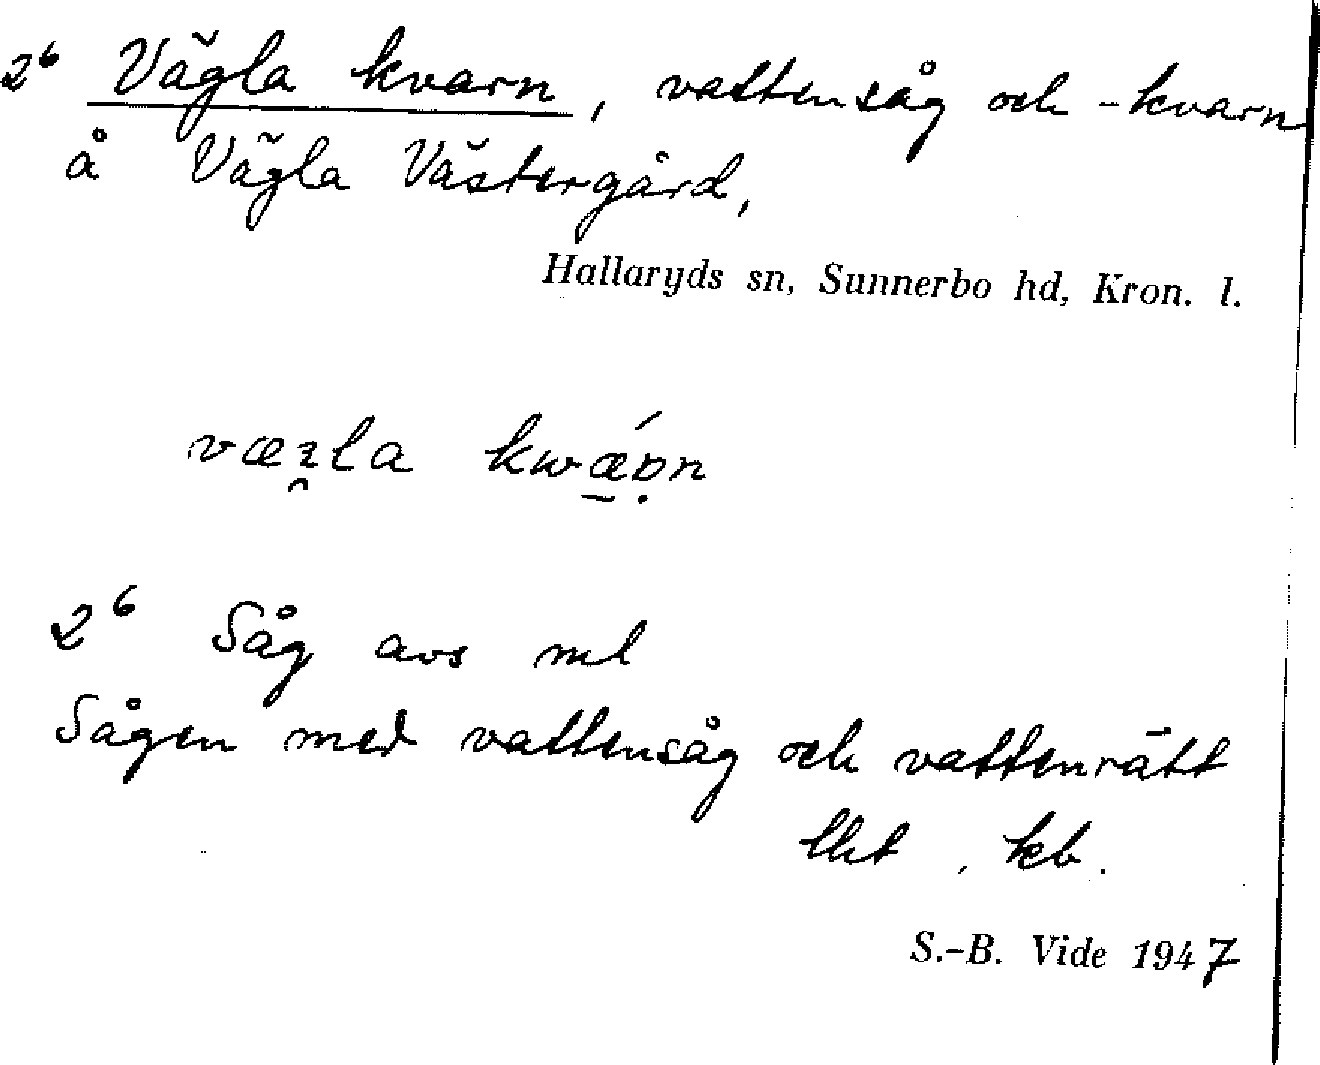 2⁶ Vägla kvarn, vattensåg och -kvarn
å Vägla Västergård,
Hallaryds sn, Sunnerbo hd, Kron. l.
2⁶ Såg avs ml
Sågen med vattensåg och vattenrätt
kb.
S.-B. Vide 1947